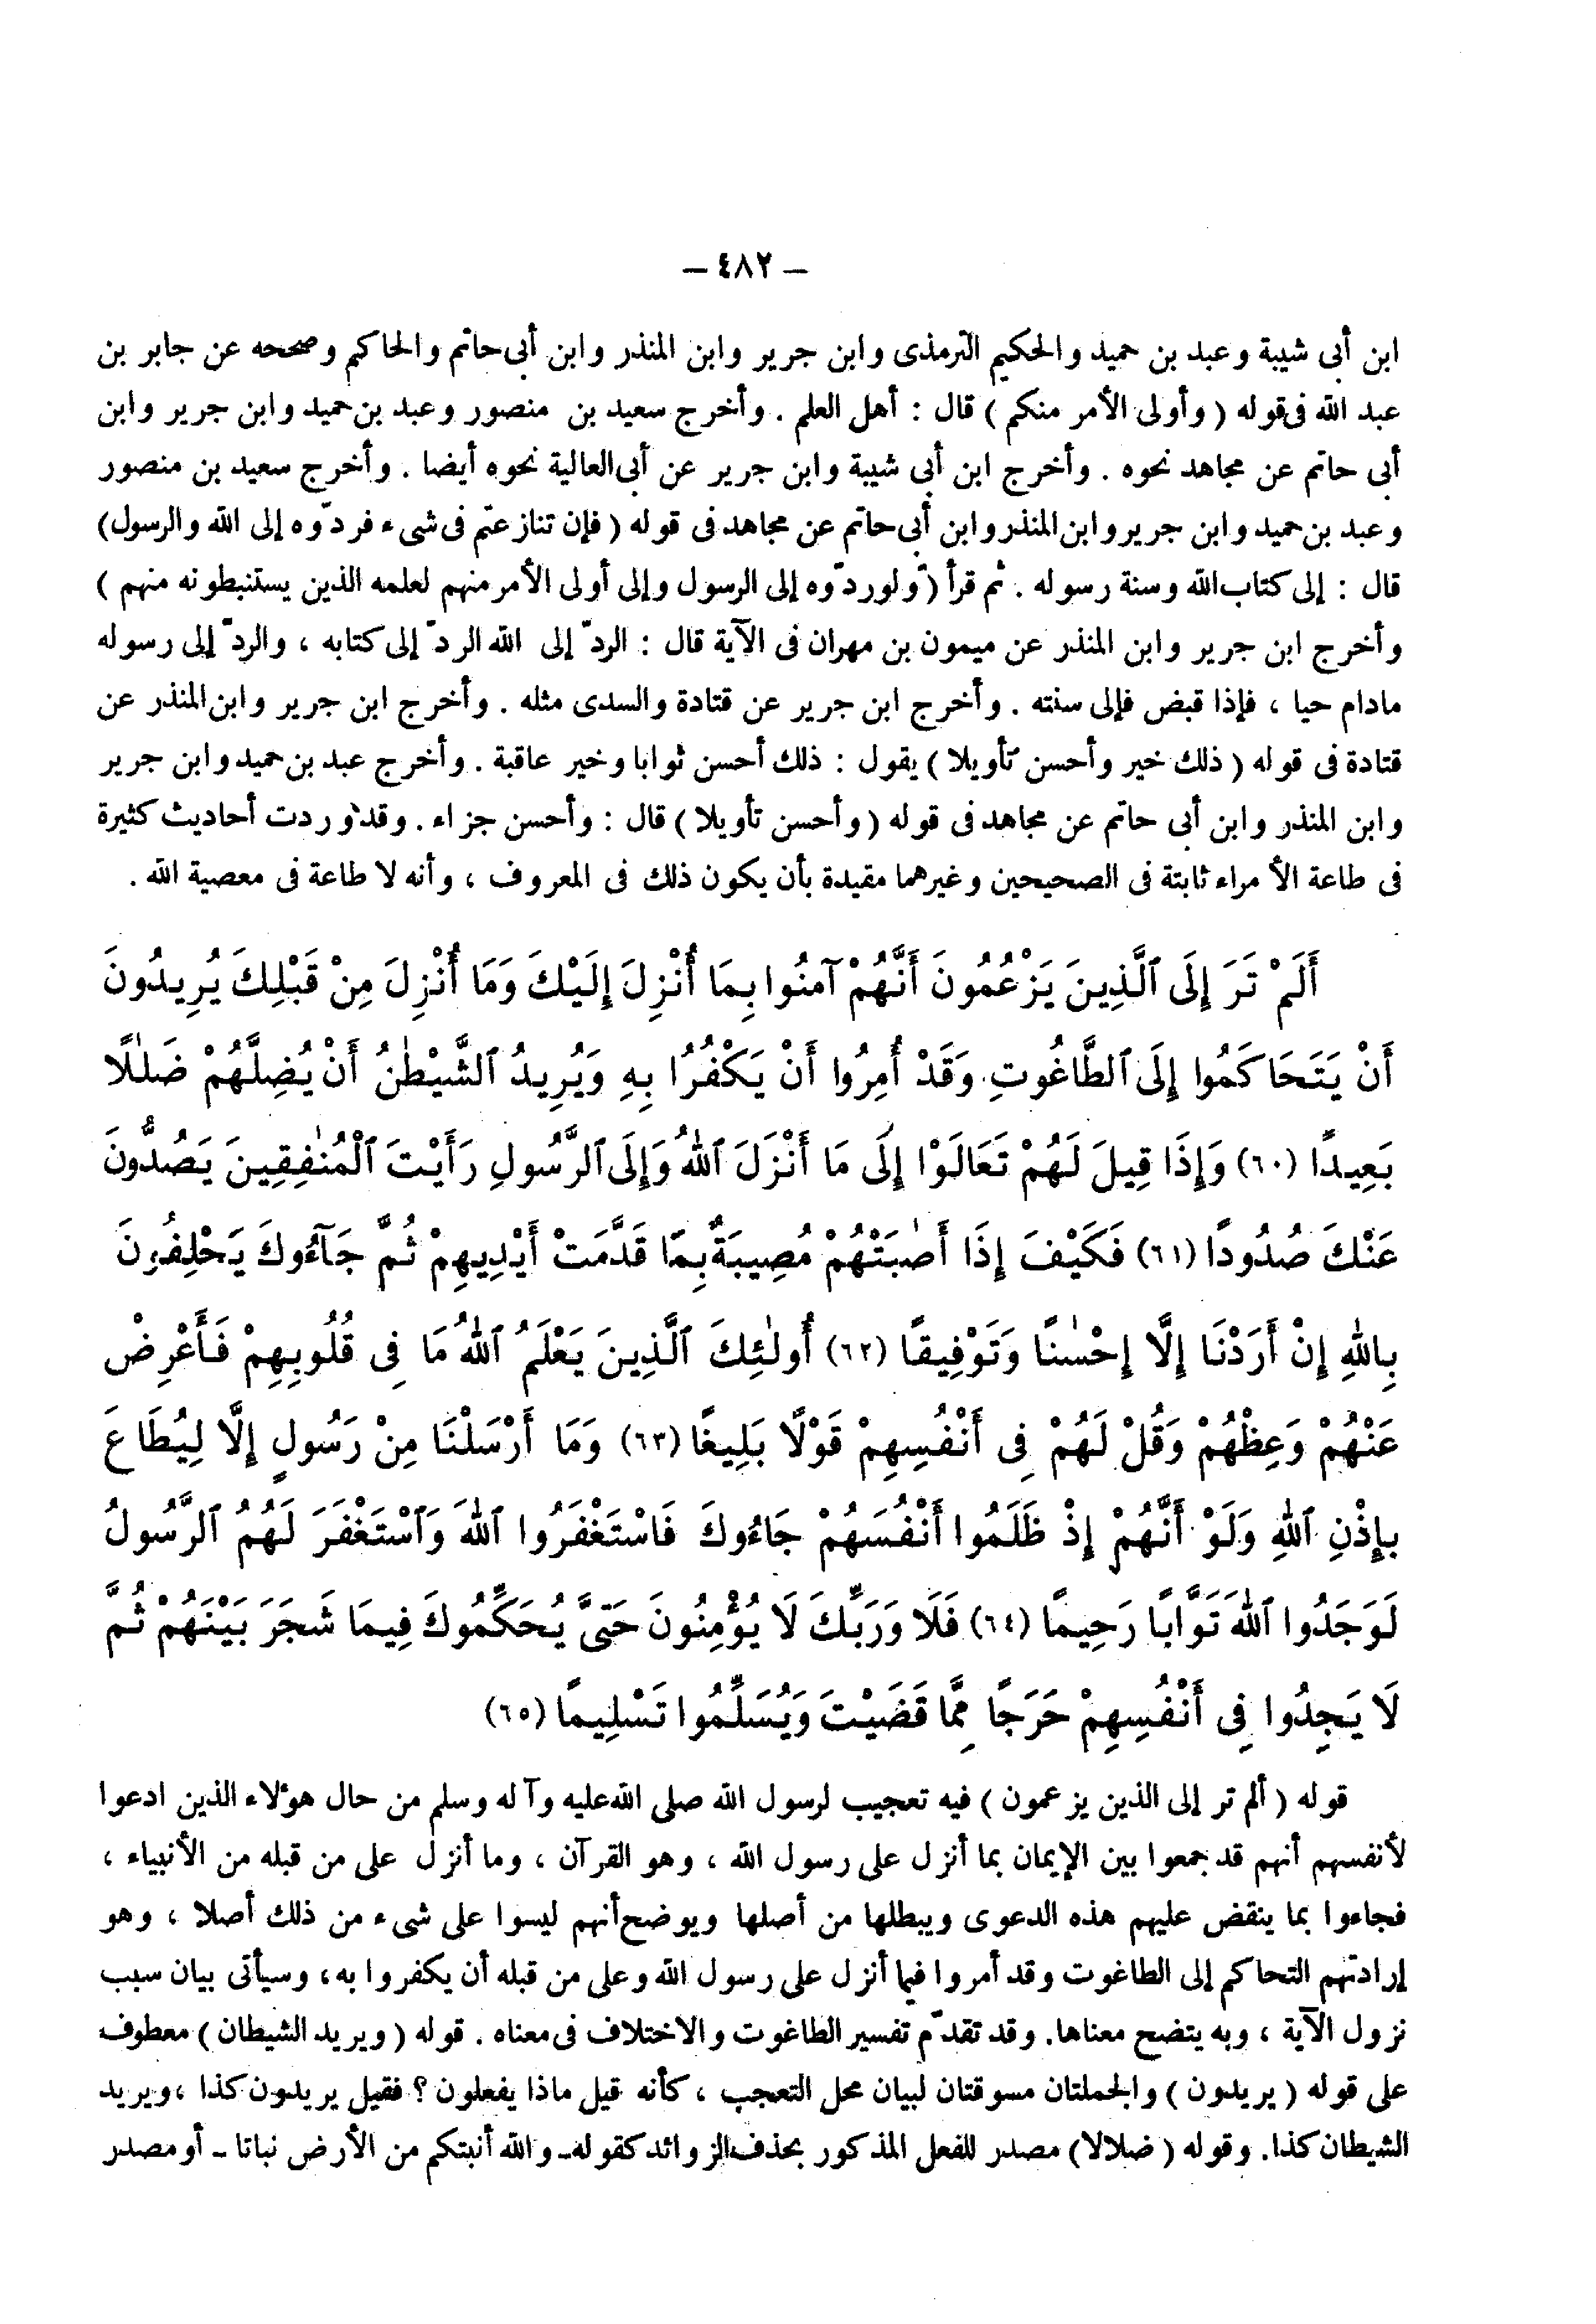 – ٤٨٢ –
ابن أبى شيبة وعبد بن حميد والحكيم الترمذى وابن جرير وابن المنذر وابن أبى حاتم والحاكم وصححه عن جابر بن
عبد الله فى قوله ( وأولى الأمر منكم ) قال : أهل العلم . وأخرج سعيد بن منصور وعبد بن حميد وابن جرير وابن
أبى حاتم عن مجاهد نحوه . وأخرج ابن أبى شيبة وابن جرير عن أبى العالية نحوه أيضا . وأخرج سعيد بن منصور
وعبد بن حميد وابن جرير وابن المنذر وابن أبى حاتم عن مجاهد فى قوله ( فإن تنازعتم فى شىء فردّوه إلى الله والرسول)
قال : إلى كتاب الله وسنة رسوله . ثم قرأ ( ولو ردّوه إلى الرسول وإلى أولى الأمر منهم لعلمه الذين يستنبطونه منهم )
وأخرج ابن جرير وابن المنذر عن ميمون بن مهران فى الآية قال : الردّ إلى الله الردّ إلى كتابه ، والردّ إلى رسوله
مادام حيا ، فإذا قبض فإلى سنته . وأخرج ابن جرير عن قتادة والسدى مثله . وأخرج ابن جرير وابن المنذر عن
قتادة فى قوله ( ذلك خير وأحسن تأويلا ) يقول : ذلك أحسن ثوابا وخير عاقبة . وأخرج عبد بن حميد وابن جرير
وابن المنذر وابن أبى حاتم عن مجاهد فى قوله ( وأحسن تأويلا ) قال : وأحسن جزاء . وقد وردت أحاديث كثيرة
فى طاعة الأمراء ثابتة فى الصحيحين وغيرهما مقيدة بأن يكون ذلك فى المعروف ، وأنه لا طاعة فى معصية الله .
أَلَمْ تَرَ إِلَى ٱلَّذِينَ يَزْعُمُونَ أَنَّهُمْ آمَنُوا بِمَا أُنْزِلَ إِلَيْكَ وَمَا أُنْزِلَ مِنْ قَبْلِكَ يُرِيدُونَ
أَنْ يَتَحَاكَمُوا إِلَى ٱلطَّاغُوتِ وَقَدْ أُمِرُوا أَنْ يَكْفُرُا بِهِ وَيُرِيدُ ٱلشَّيْطٰنُ أَنْ يُضِلَّهُمْ ضَلٰلًا
بَعِيدًا (٦٠) وَإِذَا قِيلَ لَهُمْ تَعَالَوْا إِلَى مَا أَنْزَلَ ٱللهُ وَإِلَى ٱلرَّسُولِ رَأَيْتَ ٱلْمُنٰفِقِينَ يَصُدُّونَ
عَنْكَ صُدُودًا (٦١) فَكَيْفَ إِذَا أَصٰبَتْهُمْ مُصِيبَةٌ بِمَا قَدَّمَتْ أَيْدِيهِمْ ثُمَّ جَآءُوكَ يَحْلِفُونَ
بِاللهِ إِنْ أَرَدْنَا إِلَّا إِحْسٰنًا وَتَوْفِيقًا (٦٢) أُولٰئِكَ ٱلَّذِينَ يَعْلَمُ ٱللهُ مَا فِى قُلُوبِهِمْ فَأَعْرِضْ
عَنْهُمْ وَعِظْهُمْ وَقُلْ لَهُمْ فِى أَنْفُسِهِمْ قَوْلًا بَلِيغًا (٦٣) وَمَا أَرْسَلْنَا مِنْ رَسُولٍ إِلَّا لِيُطَاعَ
بِإِذْنِ ٱللهِ وَلَوْ أَنَّهُمْ إِذْ ظَلَمُوا أَنْفُسَهُمْ جَاءُوكَ فَاسْتَغْفَرُوا ٱللهَ وَٱسْتَغْفَرَ لَهُمُ ٱلرَّسُولُ
لَوَجَدُوا ٱللهَ تَوَّابًا رَحِيمًا (٦٤) فَلَا وَرَبِّكَ لَا يُؤْمِنُونَ حَتَّىٰ يُحَكِّمُوكَ فِيمَا شَجَرَ بَيْنَهُمْ ثُمَّ
لَا يَجِدُوا فِى أَنْفُسِهِمْ حَرَجًا مِمَّا قَضَيْتَ وَيُسَلِّمُوا تَسْلِيمًا (٦٥)
قوله ( ألم تر إلى الذين يزعمون ) فيه تعجيب لرسول الله صلى الله عليه وآله وسلم من حال هؤلاء الذين ادعوا
لأنفسهم أنهم قد جمعوا بين الإيمان بما أنزل على رسول الله ، وهو القرآن ، وما أنزل على من قبله من الأنبياء ،
فجاءوا بما ينقض عليهم هذه الدعوى ويبطلها من أصلها ويوضح أنهم ليسوا على شىء من ذلك أصلا ، وهو
إرادتهم التحاكم إلى الطاغوت وقد أمروا فيما أنزل على رسول الله وعلى من قبله أن يكفروا به، وسيأتى بيان سبب
نزول الآية ، وبه يتضح معناها. وقد تقدّم تفسير الطاغوت والاختلاف فى معناه . قوله ( ويريد الشيطان ) معطوف
على قوله ( يريدون ) والجملتان مسوقتان لبيان محل التعجب ، كأنه قيل ماذا يفعلون ؟ فقيل يريدون كذا ، ويريد
الشيطان كذا. وقوله ( ضلالا) مصدر للفعل المذكور بحذف الزوائد كقوله ـ والله أنبتكم من الأرض نباتا ـ أو مصدر